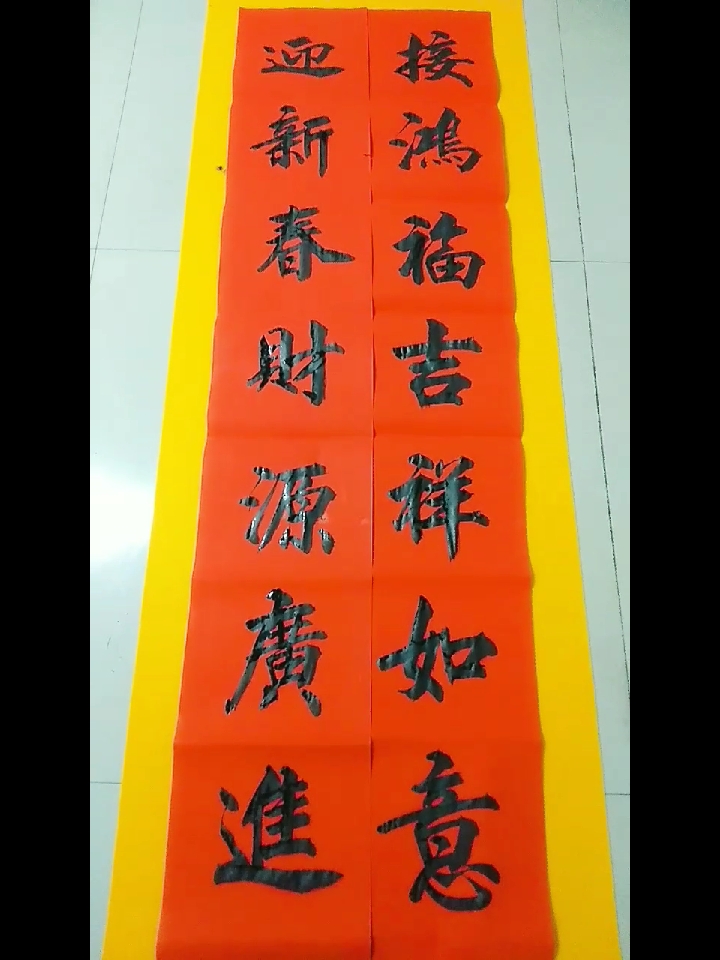 接鴻福吉祥如意
迎新春財源廣進